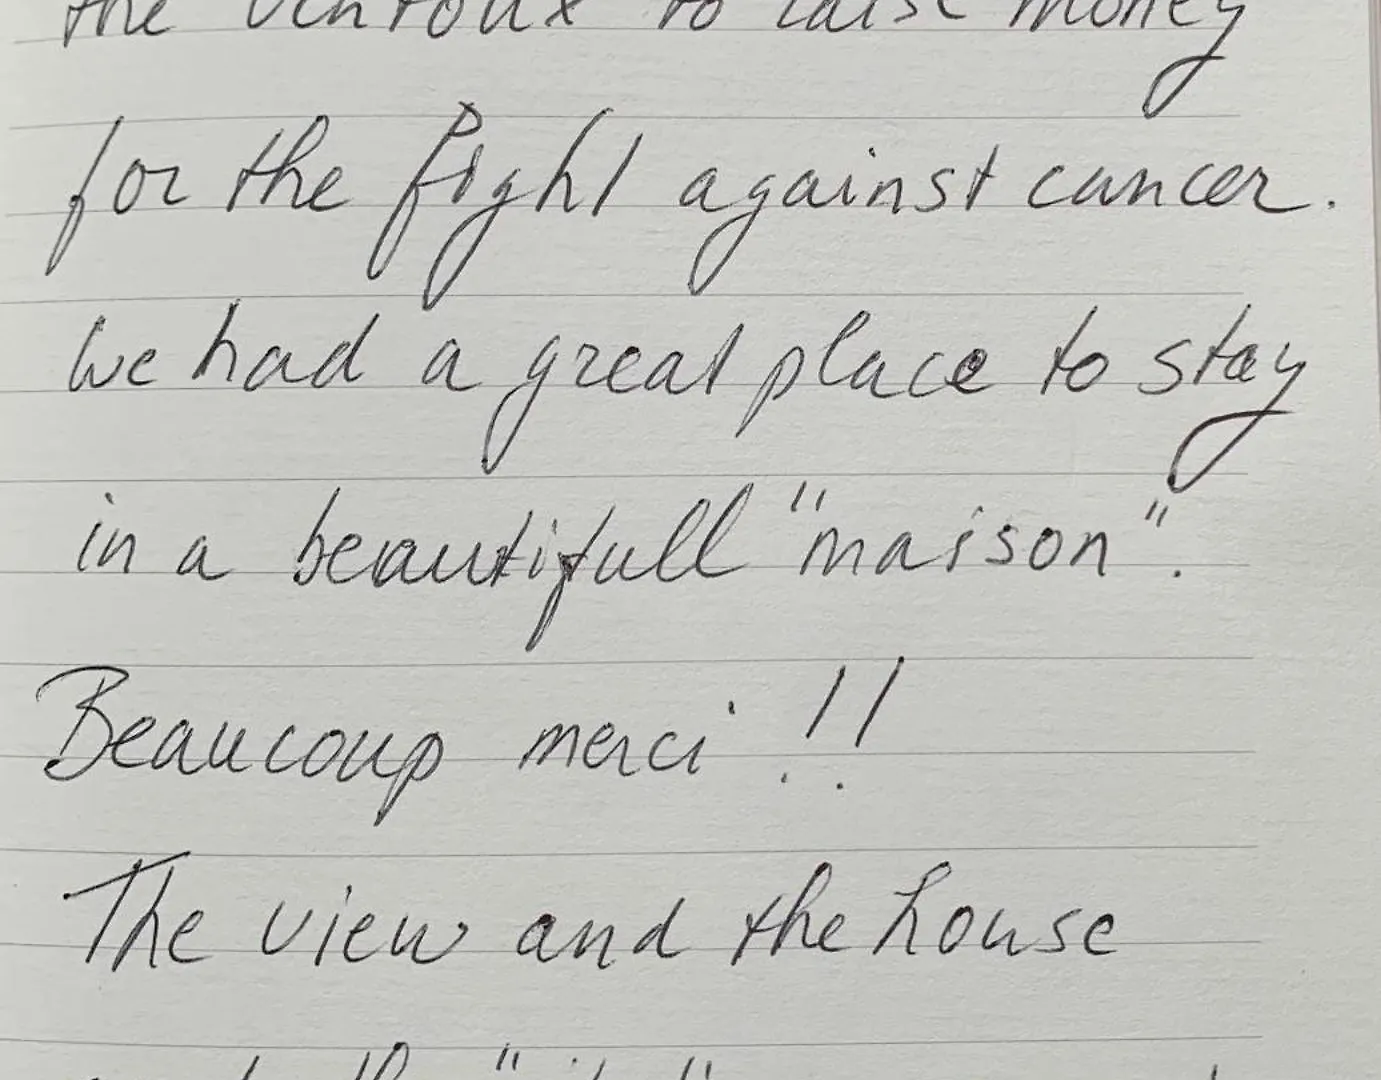 the Ventoux to raise money
for the fight against cancer.
We had a great place to stay
in a beautifull "maison".
Beaucoup merci !!
The view and the house